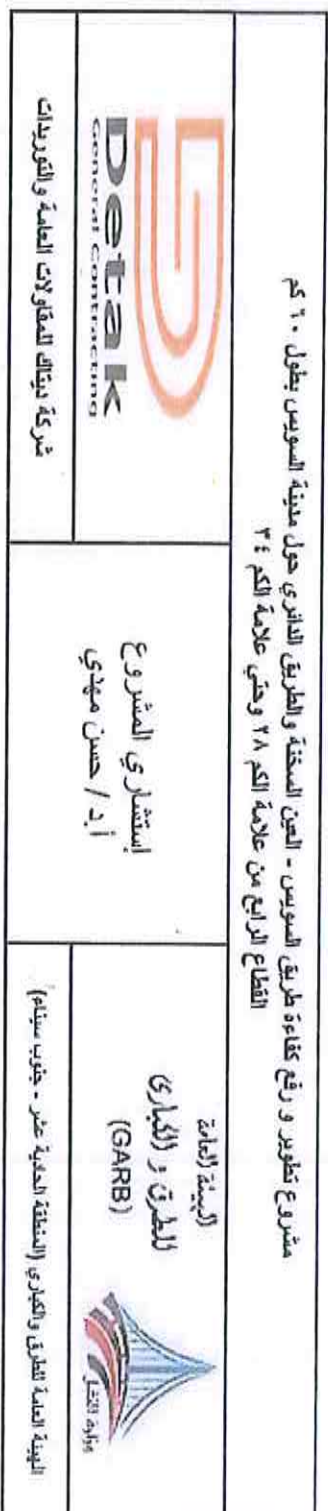 مشروع تطوير و رفع كفاءة طريق السويس - العين السخنة والطريق الدائري حول مدينة السويس بطول ٦٠ كم
القطاع الرابع من علامة الكم ٢٨ وحتي علامة الكم ٣٤
الهيئة العامة
للطرق و الكبارى
(GARB)
وزارة النقل
الهيئة العامة للطرق والكباري (المنطقة الحادية عشر - جنوب سيناء)
إستشاري المشروع
أ.د / حسن مهدي
Detak
General Contracting
شركة ديتاك للمقاولات العامة والتوريدات